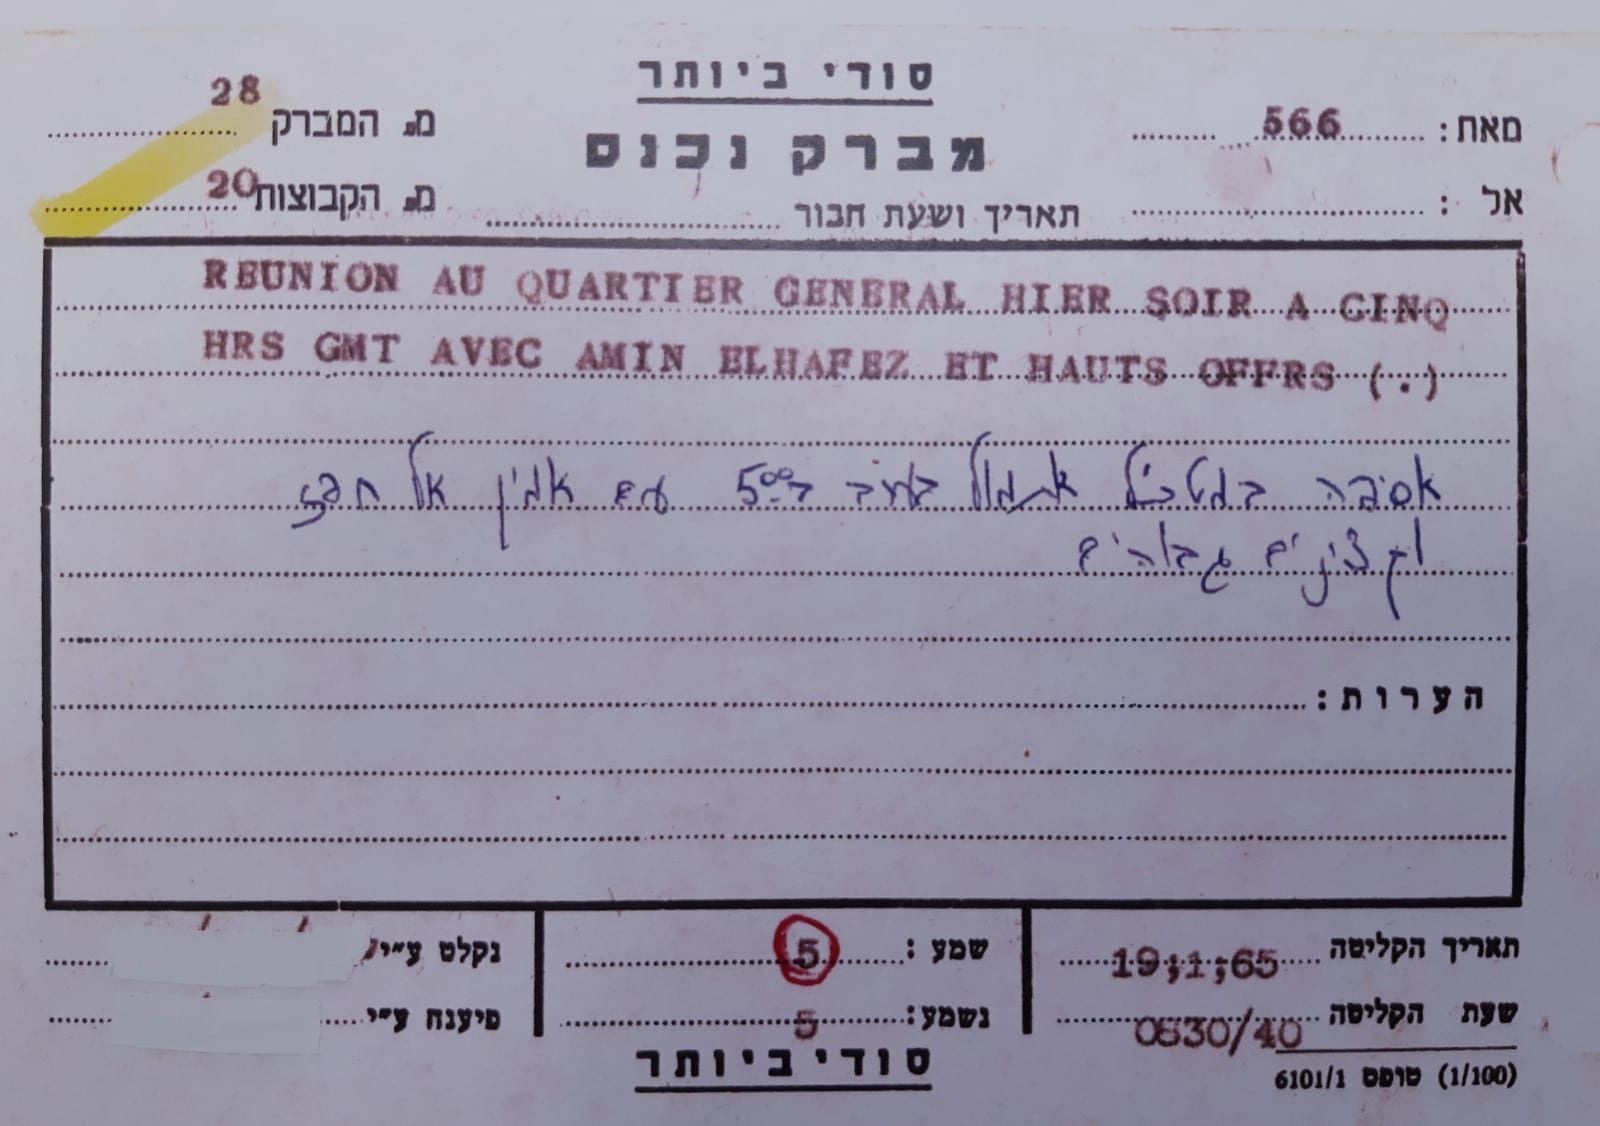 סודי ביותר
מאת: 566
מברק נכנס
מ. המברק 28
אל :
תאריך ושעת חבור
מ. הקבוצות 20
REUNION AU QUARTIER GENERAL HIER SOIR A CINQ
HRS GMT AVEC AMIN ELHAFEZ ET HAUTS OFFRS (.)
אסיפה במטכ"ל אתמול בערב ב-5:00 עם אמין אל חפז
וקצינים גבוהים
הערות :
תאריך הקליטה 19;1;65
שעת הקליטה 0630/40
שמע : 5
נשמע: 5
נקלט ע"י
פיענח ע"י
סודי ביותר
(1/100) טופס 6101/1